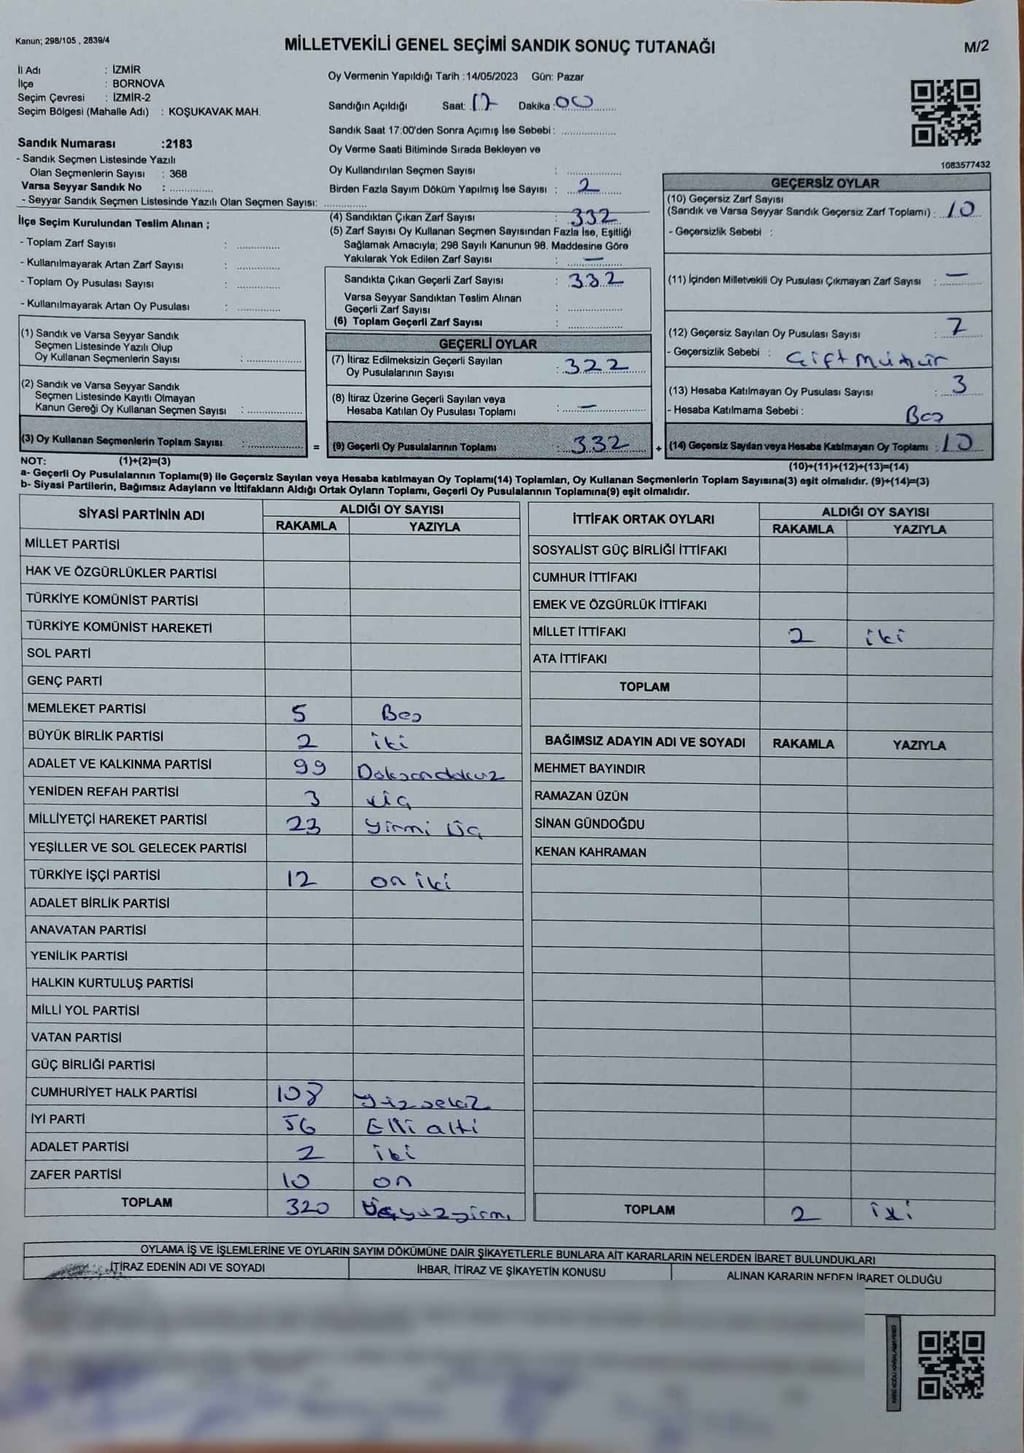 Kanun; 298/105 , 2839/4
MİLLETVEKİLİ GENEL SEÇİMİ SANDIK SONUÇ TUTANAĞI
M/2
İl Adı : İZMİR
İlçe : BORNOVA
Seçim Çevresi : İZMİR-2
Seçim Bölgesi (Mahalle Adı) : KOŞUKAVAK MAH.
Sandık Numarası :2183
- Sandık Seçmen Listesinde Yazılı
Olan Seçmenlerin Sayısı : 368
Varsa Seyyar Sandık No :
- Seyyar Sandık Seçmen Listesinde Yazılı Olan Seçmen Sayısı:
Oy Vermenin Yapıldığı Tarih :14/05/2023 Gün: Pazar
Sandığın Açıldığı Saat: 17 Dakika: 00
Sandık Saat 17:00'den Sonra Açımış İse Sebebi :
Oy Verme Saati Bitiminde Sırada Bekleyen ve
Oy Kullandırılan Seçmen Sayısı :
Birden Fazla Sayım Döküm Yapılmış İse Sayısı : 2
1083577432
İlçe Seçim Kurulundan Teslim Alınan ;
- Toplam Zarf Sayısı :
- Kullanılmayarak Artan Zarf Sayısı :
- Toplam Oy Pusulası Sayısı :
- Kullanılmayarak Artan Oy Pusulası :
(1) Sandık ve Varsa Seyyar Sandık
Seçmen Listesinde Yazılı Olup
Oy Kullanan Seçmenlerin Sayısı :
(2) Sandık ve Varsa Seyyar Sandık
Seçmen Listesinde Kayıtlı Olmayan
Kanun Gereği Oy Kullanan Seçmen Sayısı :
(3) Oy Kullanan Seçmenlerin Toplam Sayısı :
(4) Sandıktan Çıkan Zarf Sayısı : 332
(5) Zarf Sayısı Oy Kullanan Seçmen Sayısından Fazla İse, Eşitliği
Sağlamak Amacıyla; 298 Sayılı Kanunun 98. Maddesine Göre
Yakılarak Yok Edilen Zarf Sayısı : —
Sandıkta Çıkan Geçerli Zarf Sayısı : 332
Varsa Seyyar Sandıktan Teslim Alınan
Geçerli Zarf Sayısı :
(6) Toplam Geçerli Zarf Sayısı :
GEÇERLİ OYLAR
(7) İtiraz Edilmeksizin Geçerli Sayılan
Oy Pusulalarının Sayısı : 322
(8) İtiraz Üzerine Geçerli Sayılan veya
Hesaba Katılan Oy Pusulası Toplamı : —
= (9) Geçerli Oy Pusulalarının Toplamı : 332
GEÇERSİZ OYLAR
(10) Geçersiz Zarf Sayısı
(Sandık ve Varsa Seyyar Sandık Geçersiz Zarf Toplamı) : 10
- Geçersizlik Sebebi :
(11) İçinden Milletvekili Oy Pusulası Çıkmayan Zarf Sayısı : —
(12) Geçersiz Sayılan Oy Pusulası Sayısı : 7
- Geçersizlik Sebebi : Çift Mühür
(13) Hesaba Katılmayan Oy Pusulası Sayısı : 3
- Hesaba Katılmama Sebebi : Boş
+ (14) Geçersiz Sayılan veya Hesaba Katılmayan Oy Toplamı : 10
NOT: (1)+(2)=(3)
(10)+(11)+(12)+(13)=(14)
a- Geçerli Oy Pusulalarının Toplamı(9) ile Geçersiz Sayılan veya Hesaba katılmayan Oy Toplamı(14) Toplamları, Oy Kullanan Seçmenlerin Toplam Sayısına(3) eşit olmalıdır. (9)+(14)=(3)
b- Siyasi Partilerin, Bağımsız Adayların ve İttifakların Aldığı Ortak Oyların Toplamı, Geçerli Oy Pusulalarının Toplamına(9) eşit olmalıdır.
SİYASİ PARTİNİN ADI ALDIĞI OY SAYISI
RAKAMLA YAZIYLA
MİLLET PARTİSİ
HAK VE ÖZGÜRLÜKLER PARTİSİ
TÜRKİYE KOMÜNİST PARTİSİ
TÜRKİYE KOMÜNİST HAREKETİ
SOL PARTİ
GENÇ PARTİ
MEMLEKET PARTİSİ 5 Beş
BÜYÜK BİRLİK PARTİSİ 2 iki
ADALET VE KALKINMA PARTİSİ 99 Doksandokuz
YENİDEN REFAH PARTİSİ 3 üç
MİLLİYETÇİ HAREKET PARTİSİ 23 Yirmi Üç
YEŞİLLER VE SOL GELECEK PARTİSİ
TÜRKİYE İŞÇİ PARTİSİ 12 on iki
ADALET BİRLİK PARTİSİ
ANAVATAN PARTİSİ
YENİLİK PARTİSİ
HALKIN KURTULUŞ PARTİSİ
MİLLİ YOL PARTİSİ
VATAN PARTİSİ
GÜÇ BİRLİĞİ PARTİSİ
CUMHURİYET HALK PARTİSİ 108 yüzsekiz
İYİ PARTİ 56 Elli altı
ADALET PARTİSİ 2 iki
ZAFER PARTİSİ 10 on
TOPLAM 320 Üçyüzyirmi
İTTİFAK ORTAK OYLARI ALDIĞI OY SAYISI
RAKAMLA YAZIYLA
SOSYALİST GÜÇ BİRLİĞİ İTTİFAKI
CUMHUR İTTİFAKI
EMEK VE ÖZGÜRLÜK İTTİFAKI
MİLLET İTTİFAKI 2 iki
ATA İTTİFAKI
TOPLAM
BAĞIMSIZ ADAYIN ADI VE SOYADI RAKAMLA YAZIYLA
MEHMET BAYINDIR
RAMAZAN ÜZÜN
SİNAN GÜNDOĞDU
KENAN KAHRAMAN
TOPLAM 2 iki
OYLAMA İŞ VE İŞLEMLERİNE VE OYLARIN SAYIM DÖKÜMÜNE DAİR ŞİKAYETLERLE BUNLARA AİT KARARLARIN NELERDEN İBARET BULUNDUKLARI
İTİRAZ EDENİN ADI VE SOYADI İHBAR, İTİRAZ VE ŞİKAYETİN KONUSU ALINAN KARARIN NEDEN İBARET OLDUĞU